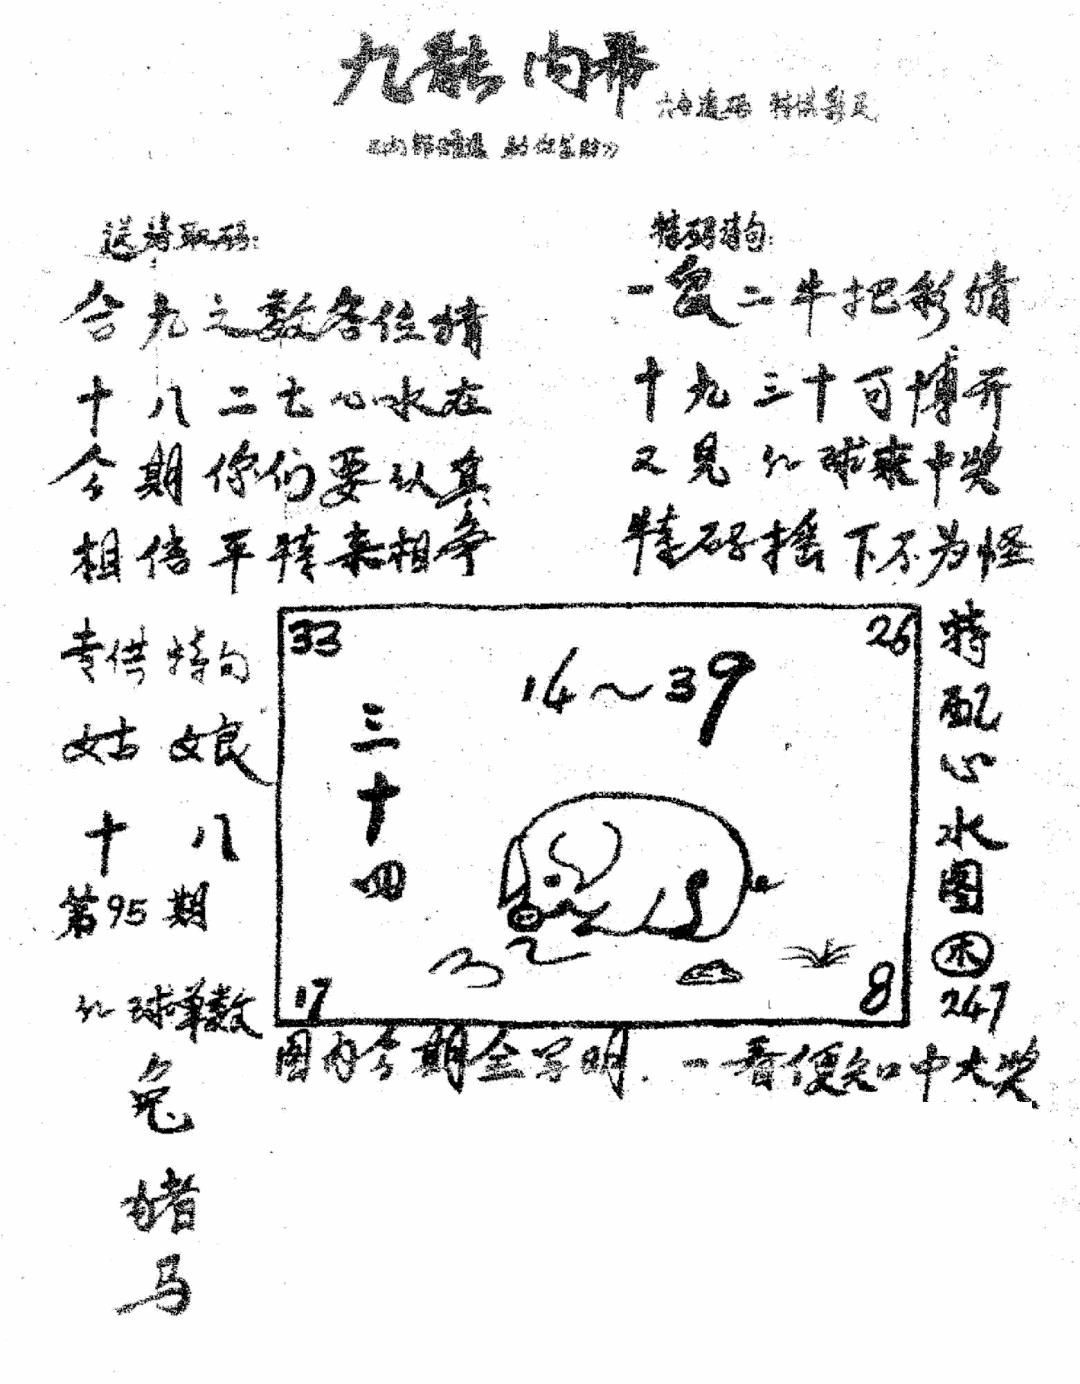 九龍内幕
送特取码:
合九之数各位猜
十八二七心水在
今期你们要认真
相信平特来相争
特码诗句:
一兔二牛把彩猜
十九三十可博开
又见红球来中奖
特码摇下不为怪
专供特句
姑娘
十八
第95期
红球单数
兔
猪
马
33
26
14～39
三十四
17
8
特配心水图
木
247
图内今期全写明.一看便知中大奖